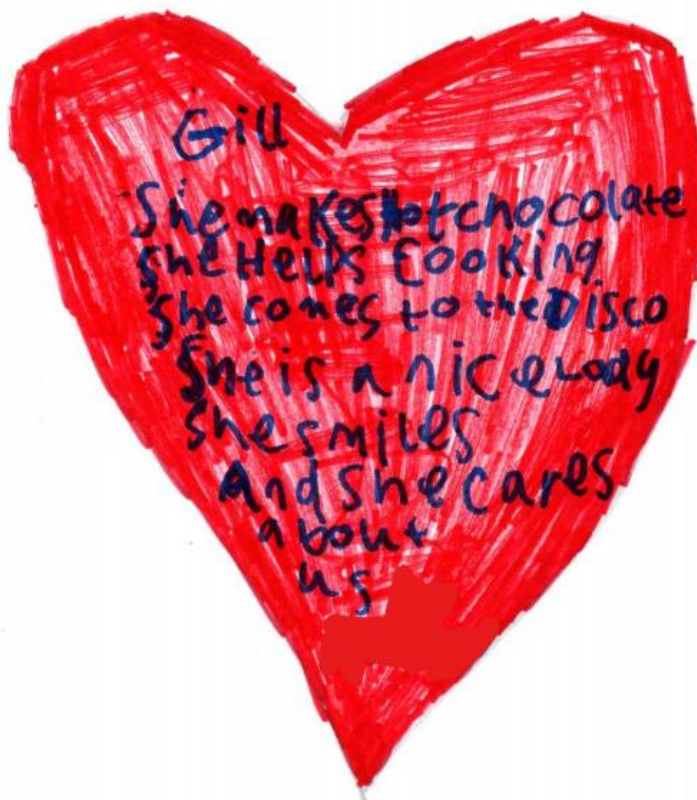 Gill
She makes Hot chocolate
she Helps cooking
she comes to the Disco
She is a nice Lady
she smiles
And she cares
about
us